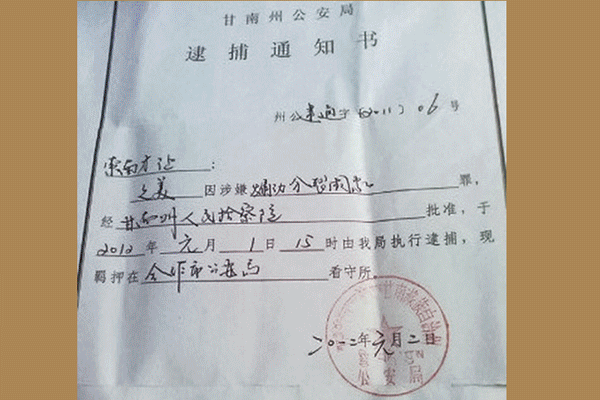 甘南州公安局
逮捕通知书
州公逮通字(2011)06号
索南才让:
之美因涉嫌煽动分裂国家罪,
经甘南州人民检察院批准,于
2012年元月1日15时由我局执行逮捕,现
羁押在合作市公安局看守所。
二〇一二年元月二日
甘南藏族自治州
公安局